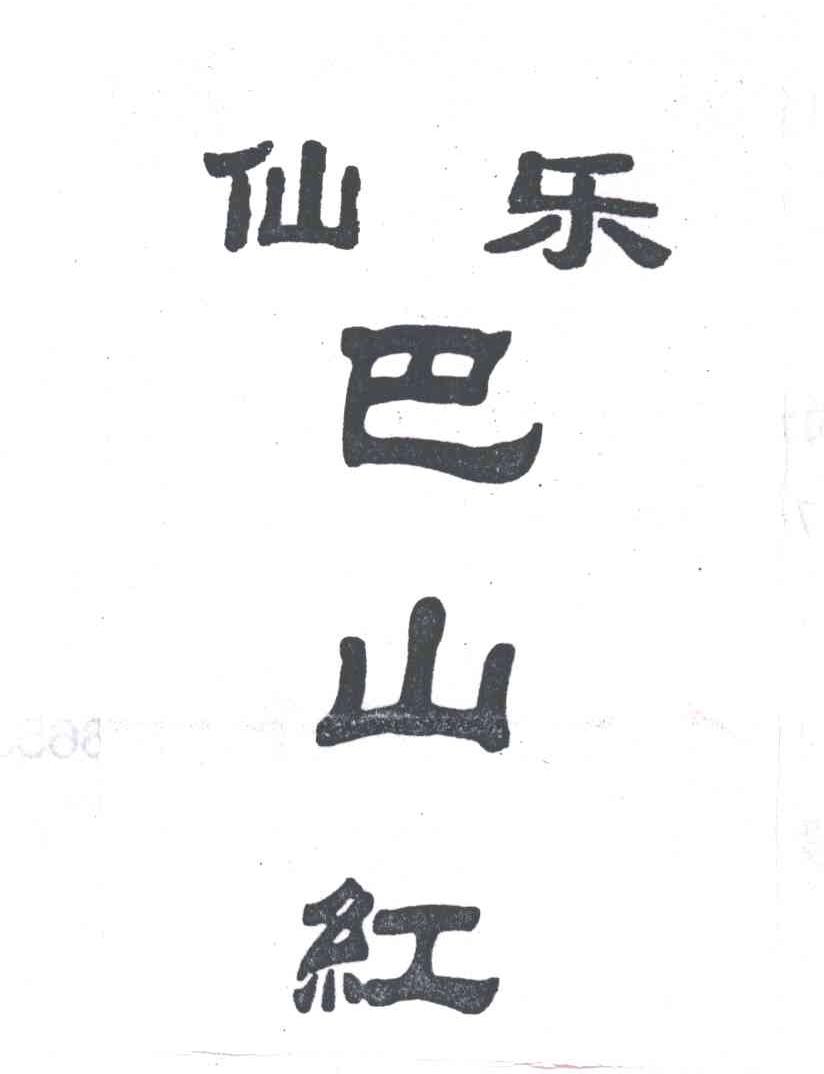 仙乐
巴
山
紅